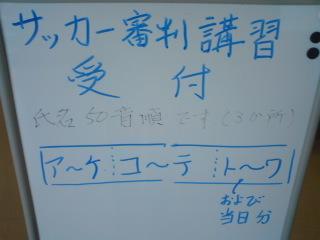 サッカー審判講習
受付
氏名50音順です(3か所)
ア〜ケ コ〜テ ト〜ワ
および
当日分